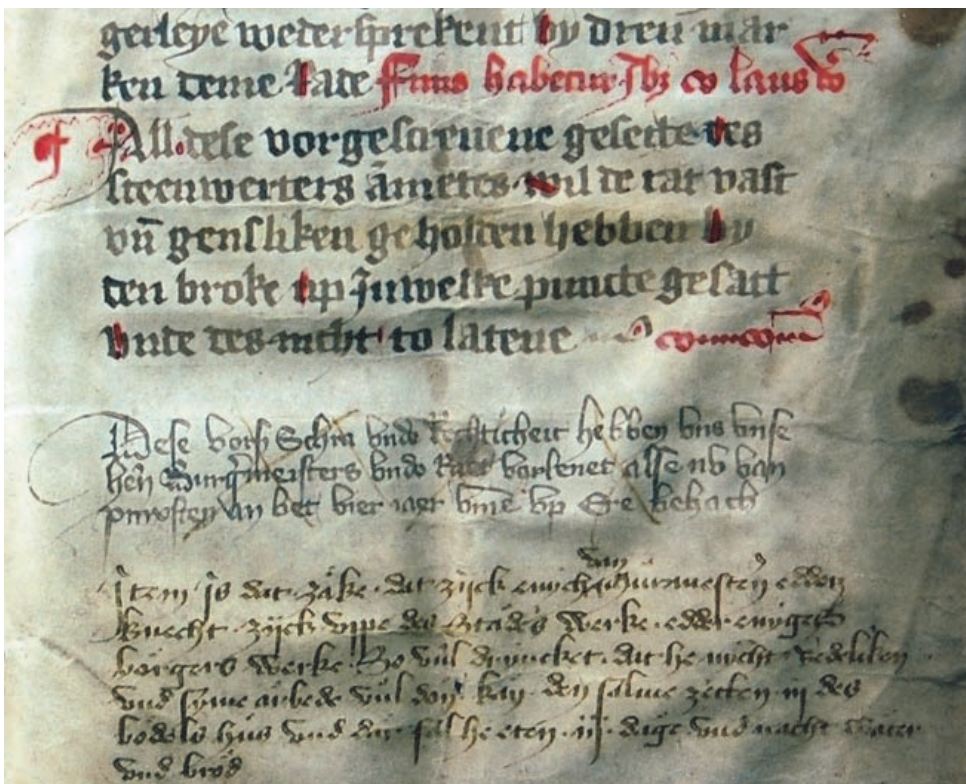 gerleye wedersprekent by dren mar
ken deme Rade Finito habetur sit laus
All dese vorgescreuene gesette des
steenwerters āmetes wil de rat vast
vn̄ gensliken geholden hebben by
den broke up Juwelke puncte gesatt
vnde des nicht to latene
Dese vorsz Schra vnde Rechticheit hebben vns vnse
hēn Burgermeisters vnde Raet vorlenet alse nv van
pinxsten an bet vier iaer vm̄e vp Ere behach
dan
Item is dat zake dat zijck enich Murmester edder
knecht zijck vppe des Stades werke edder eniges
borgers werke So vul drincket dat he nicht Redeliken
vnd syme arbede vul don kan den salme zetten in des
bodels hus vnd dar sal he eten iij dage vnd nacht water
vnd brod